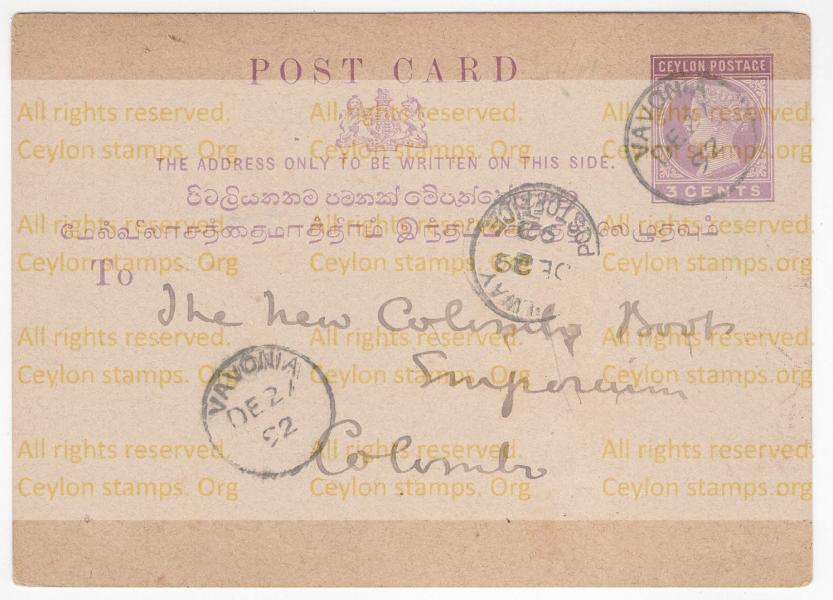 POST CARD
CEYLON POSTAGE
3 CENTS
THE ADDRESS ONLY TO BE WRITTEN ON THIS SIDE.
පිටලියනතම පමනක් මේපැත්තේ
மேல்விலாசத்தைமாத்திரம் இந்தப்
To
The New Colombo Book
Emporium
Colombo
VAVONIA
DE
92
POST OFFICE
DE
92
VAVONIA
DE 27
92
All rights reserved. All rights reserved. All rights reserved.
Ceylon stamps. Org Ceylon stamps. Org Ceylon stamps. Org
All rights reserved. All rights reserved. All rights reserved.
Ceylon stamps. Org Ceylon stamps. Org Ceylon stamps. Org
All rights reserved. All rights reserved. All rights reserved.
Ceylon stamps. Org Ceylon stamps. Org Ceylon stamps. Org
All rights reserved. All rights reserved. All rights reserved.
Ceylon stamps. Org Ceylon stamps. Org Ceylon stamps. Org